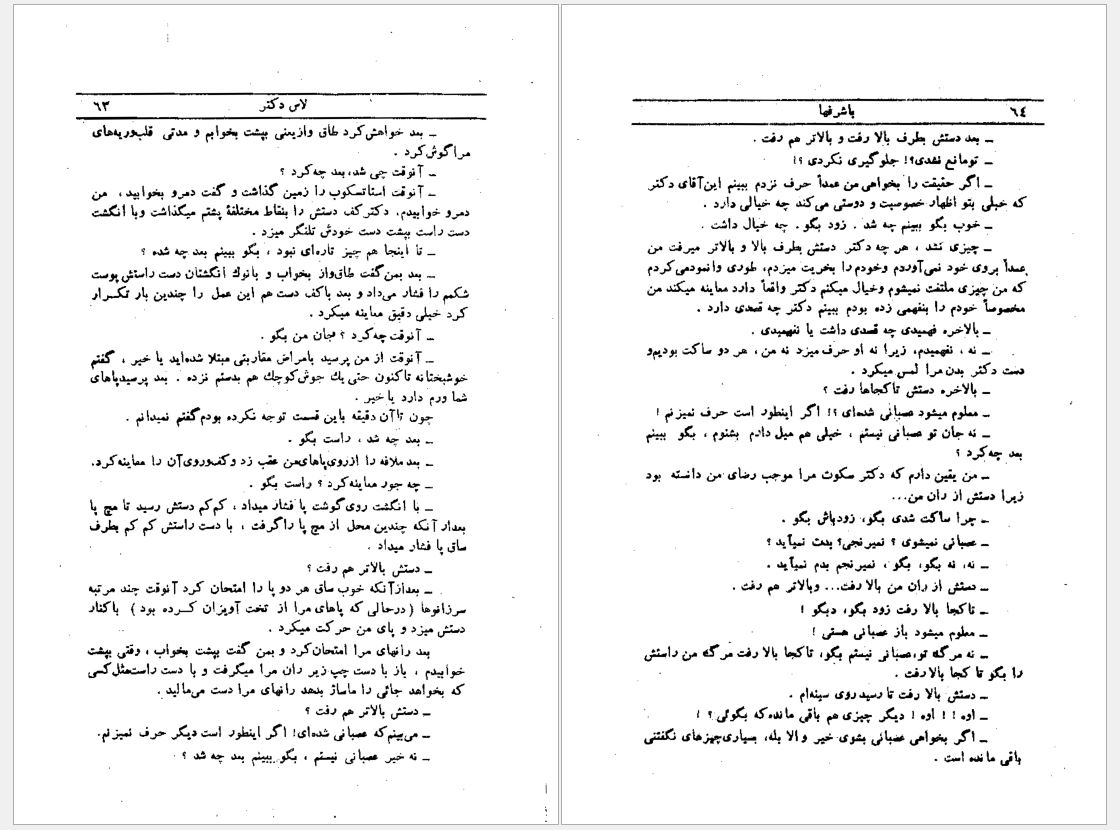 ٦٣ لاس دکتر
ـ بعد خواهش‌کرد طاق وازیعنی بپشت بخوابم و مدتی قلب‌وریه‌های
مراگوش‌کرد .
ـ آنوقت چی شد، بعد چه‌کرد ؟
ـ آنوقت استاتسکوب را زمین گذاشت و گفت دمرو بخوابید، من
دمرو خوابیدم، دکترکف دستش را بنقاط مختلفهٔ پشتم میگذاشت وبا انگشت
دست راست بپشت دست خودش تلنگر میزد .
ـ تا اینجا هم چیز تازه‌ای نبود ، بگو ببینم بعد چه شده ؟
ـ بعد بمن‌گفت طاق‌واز بخواب و بانوك انگشتان دست راستش پوست
شکمم را فشار می‌داد و بعد باکف دست هم این عمل را چندین بار تکـرار
کرد خیلی دقیق معاینه میکرد .
ـ آنوقت چه‌کرد ؟ جان من بگو .
ـ آنوقت از من پرسید بامراض مقاربتی مبتلا شده‌اید یا خیر ، گفتم
خوشبختانه تاکنون حتی یك جوش‌کوچك هم بدستم نزده . بعد پرسیدپاهای
شما ورم دارد یا خیر .
چون تاآن دقیقه باین قسمت توجه نکرده بودم‌گفتم نمیدانم .
ـ بعد چه شد ، راست بگو .
ـ بعد ملافه را ازروی‌پاهای‌من عقب زد وکف‌وروی‌آن را معاینه‌کرد.
ـ چه جور معاینه‌کرد ؟ راست بگو .
ـ با انگشت روی‌گوشت پا فشار میداد ، کم‌کم دستش رسید تا مچ پا
بعداز آنکه چندین محل از مچ پا راگرفت ، با دست راستش کم کم بطرف
ساق پا فشار میداد .
ـ دستش بالاتر هم رفت ؟
ـ بعدازآنکه خوب ساق هر دو پا را امتحان کرد آنوقت چند مرتبه
سرزانوها (درحالی که پاهای مرا از تخت آویزان کـرده بود) باکنار
دستش میزد و پای من حرکت میکرد .
بعد رانهای مرا امتحان‌کرد و بمن گفت بپشت بخواب ، وقتی بپشت
خوابیدم ، باز با دست چپ زیر ران مرا میگرفت و با دست راست‌مثل‌کسی
که بخواهد جائی را ماساژ بدهد رانهای مرا دست می‌مالید .
ـ دستش بالاتر هم رفت ؟
ـ می‌بینم‌که عصبانی شده‌ای! اگر اینطور است دیگر حرف نمیزنم.
ـ نه خیر عصبانی نیستم ، بگو ببینم بعد چه شد ؟
٦٤ باشرفها
ـ بعد دستش بطرف بالا رفت و بالاتر هم رفت .
ـ تومانع نشدی؟! جلوگیری نکردی ؟!
ـ اگر حقیقت را بخواهی من عمداً حرف نزدم ببینم این‌آقای دکتر
که خیلی بتو اظهار خصوصیت و دوستی می‌کند چه خیالی دارد .
ـ خوب بگو ببینم چه شد . زود بگو . چه خیال داشت .
ـ چیزی نشد ، هر چه دکتر دستش بطرف بالا و بالاتر میرفت من
عمداً بروی خود نمی‌آوردم وخودم را بخریت میزدم، طوری وانمودمی‌کردم
که من چیزی ملتفت نمیشوم وخیال میکنم دکتر واقعاً دارد معاینه میکند من
مخصوصاً خودم را بنفهمی زده بودم ببینم دکتر چه قصدی دارد .
ـ بالاخره فهمیدی چه قصدی داشت یا نفهمیدی .
ـ نه ، نفهمیدم، زیرا نه او حرف‌میزد نه من ، هر دو ساکت بودیم‌و
دست دکتر بدن مرا لمس میکرد .
ـ بالاخره دستش تاکجاها رفت ؟
ـ معلوم میشود عصبانی شده‌ای ؟! اگر اینطور است حرف نمیزنم !
ـ نه جان تو عصبانی نیستم ، خیلی هم میل دارم بشنوم ، بگو ببینم
بعد چه‌کرد ؟
ـ من یقین دارم که دکتر سکوت مرا موجب رضای من دانسته بود
زیرا دستش از ران من...
ـ چرا ساکت شدی بگو، زودباش بگو .
ـ عصبانی نمیشوی ؟ نمیرنجی؟ بدت نمیآید ؟
ـ نه، نه بگو، بگو ، نمیرنجم بدم نمیآید .
ـ دستش از ران من بالا رفت... وبالاتر هم رفت .
ـ تاکجا بالا رفت زود بگو، دبگو !
ـ معلوم میشود باز عصبانی هستی !
ـ نه مرگه تو،عصبانی نیستم بگو، تاکجا بالا رفت مرگه من راستش
را بگو تا کجا بالارفت .
ـ دستش بالا رفت تا رسید روی سینه‌ام .
ـ اوه !! اوه ! دیگر چیزی هم باقی مانده‌که بگوئی ؟ !
ـ اگر بخواهی عصبانی بشوی خیر والا بله، بسیاری‌چیزهای نگفتنی
باقی مانده است .